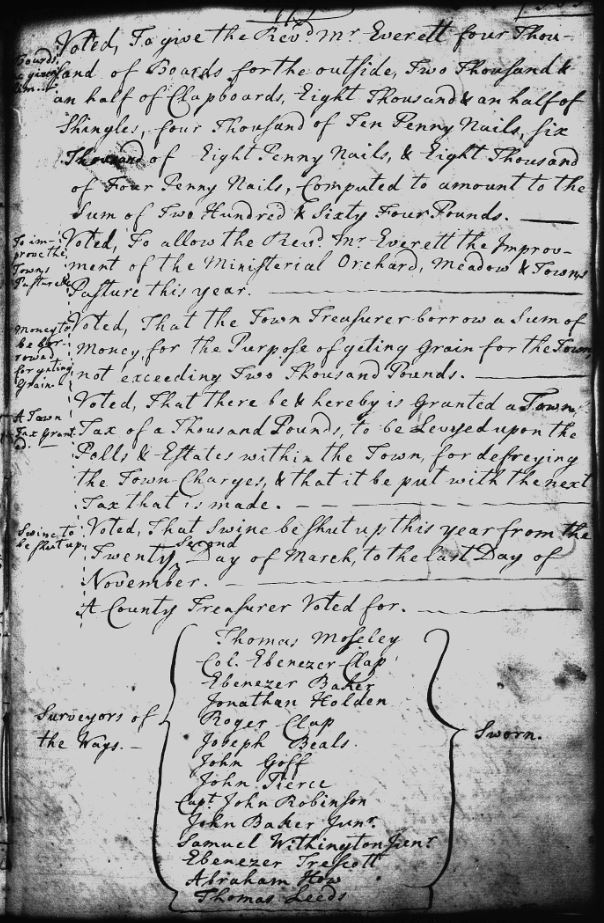 Voted, To give the Revd. Mr. Everett four Thou-
sand of Boards for the outside, Two Thousand &
an half of Clapboards, Eight Thousand & an half of
Shingles, four Thousand of Ten Penny Nails, six
Thousand of Eight Penny Nails, & Eight Thousand
of Four Penny Nails, Computed to amount to the
Sum of Two Hundred & Sixty Four Pounds.
To im-
prove the
Towns
Pasture &c
Voted, To allow the Revd. Mr. Everett the Improv-
ment of the Ministerial Orchard, Meadow & Towns
Pasture this year.
Money to
be bor-
rowed
for geting
Grain
Voted, That the Town Treasurer borrow a Sum of
Money, for the Purpose of geting Grain for the Town,
not exceeding Two Thousand Pounds.
A Town
Tax Grant
d.
Voted, That there be & hereby is Granted a Town
Tax of a Thousand Pounds, to be Levyed upon the
Polls & Estates within the Town, for defreying
the Town Charges, & that it be put with the next
Tax that is made.
Swine to
be shut up
Voted, That Swine be shut up this year from the
Twenty Second Day of March, to the last Day of
November.
A County Treasurer Voted for.
Surveyors of
the Ways.
Thomas Moseley
Col. Ebenezer Clap
Ebenezer Baker
Jonathan Holden
Roger Clap
Joseph Beals.
John Goff
John Pierce
Capt John Robinson
John Baker Junr.
Samuel Withington Junr
Ebenezer Trescott
Abraham How
Thomas Leeds
Sworn.